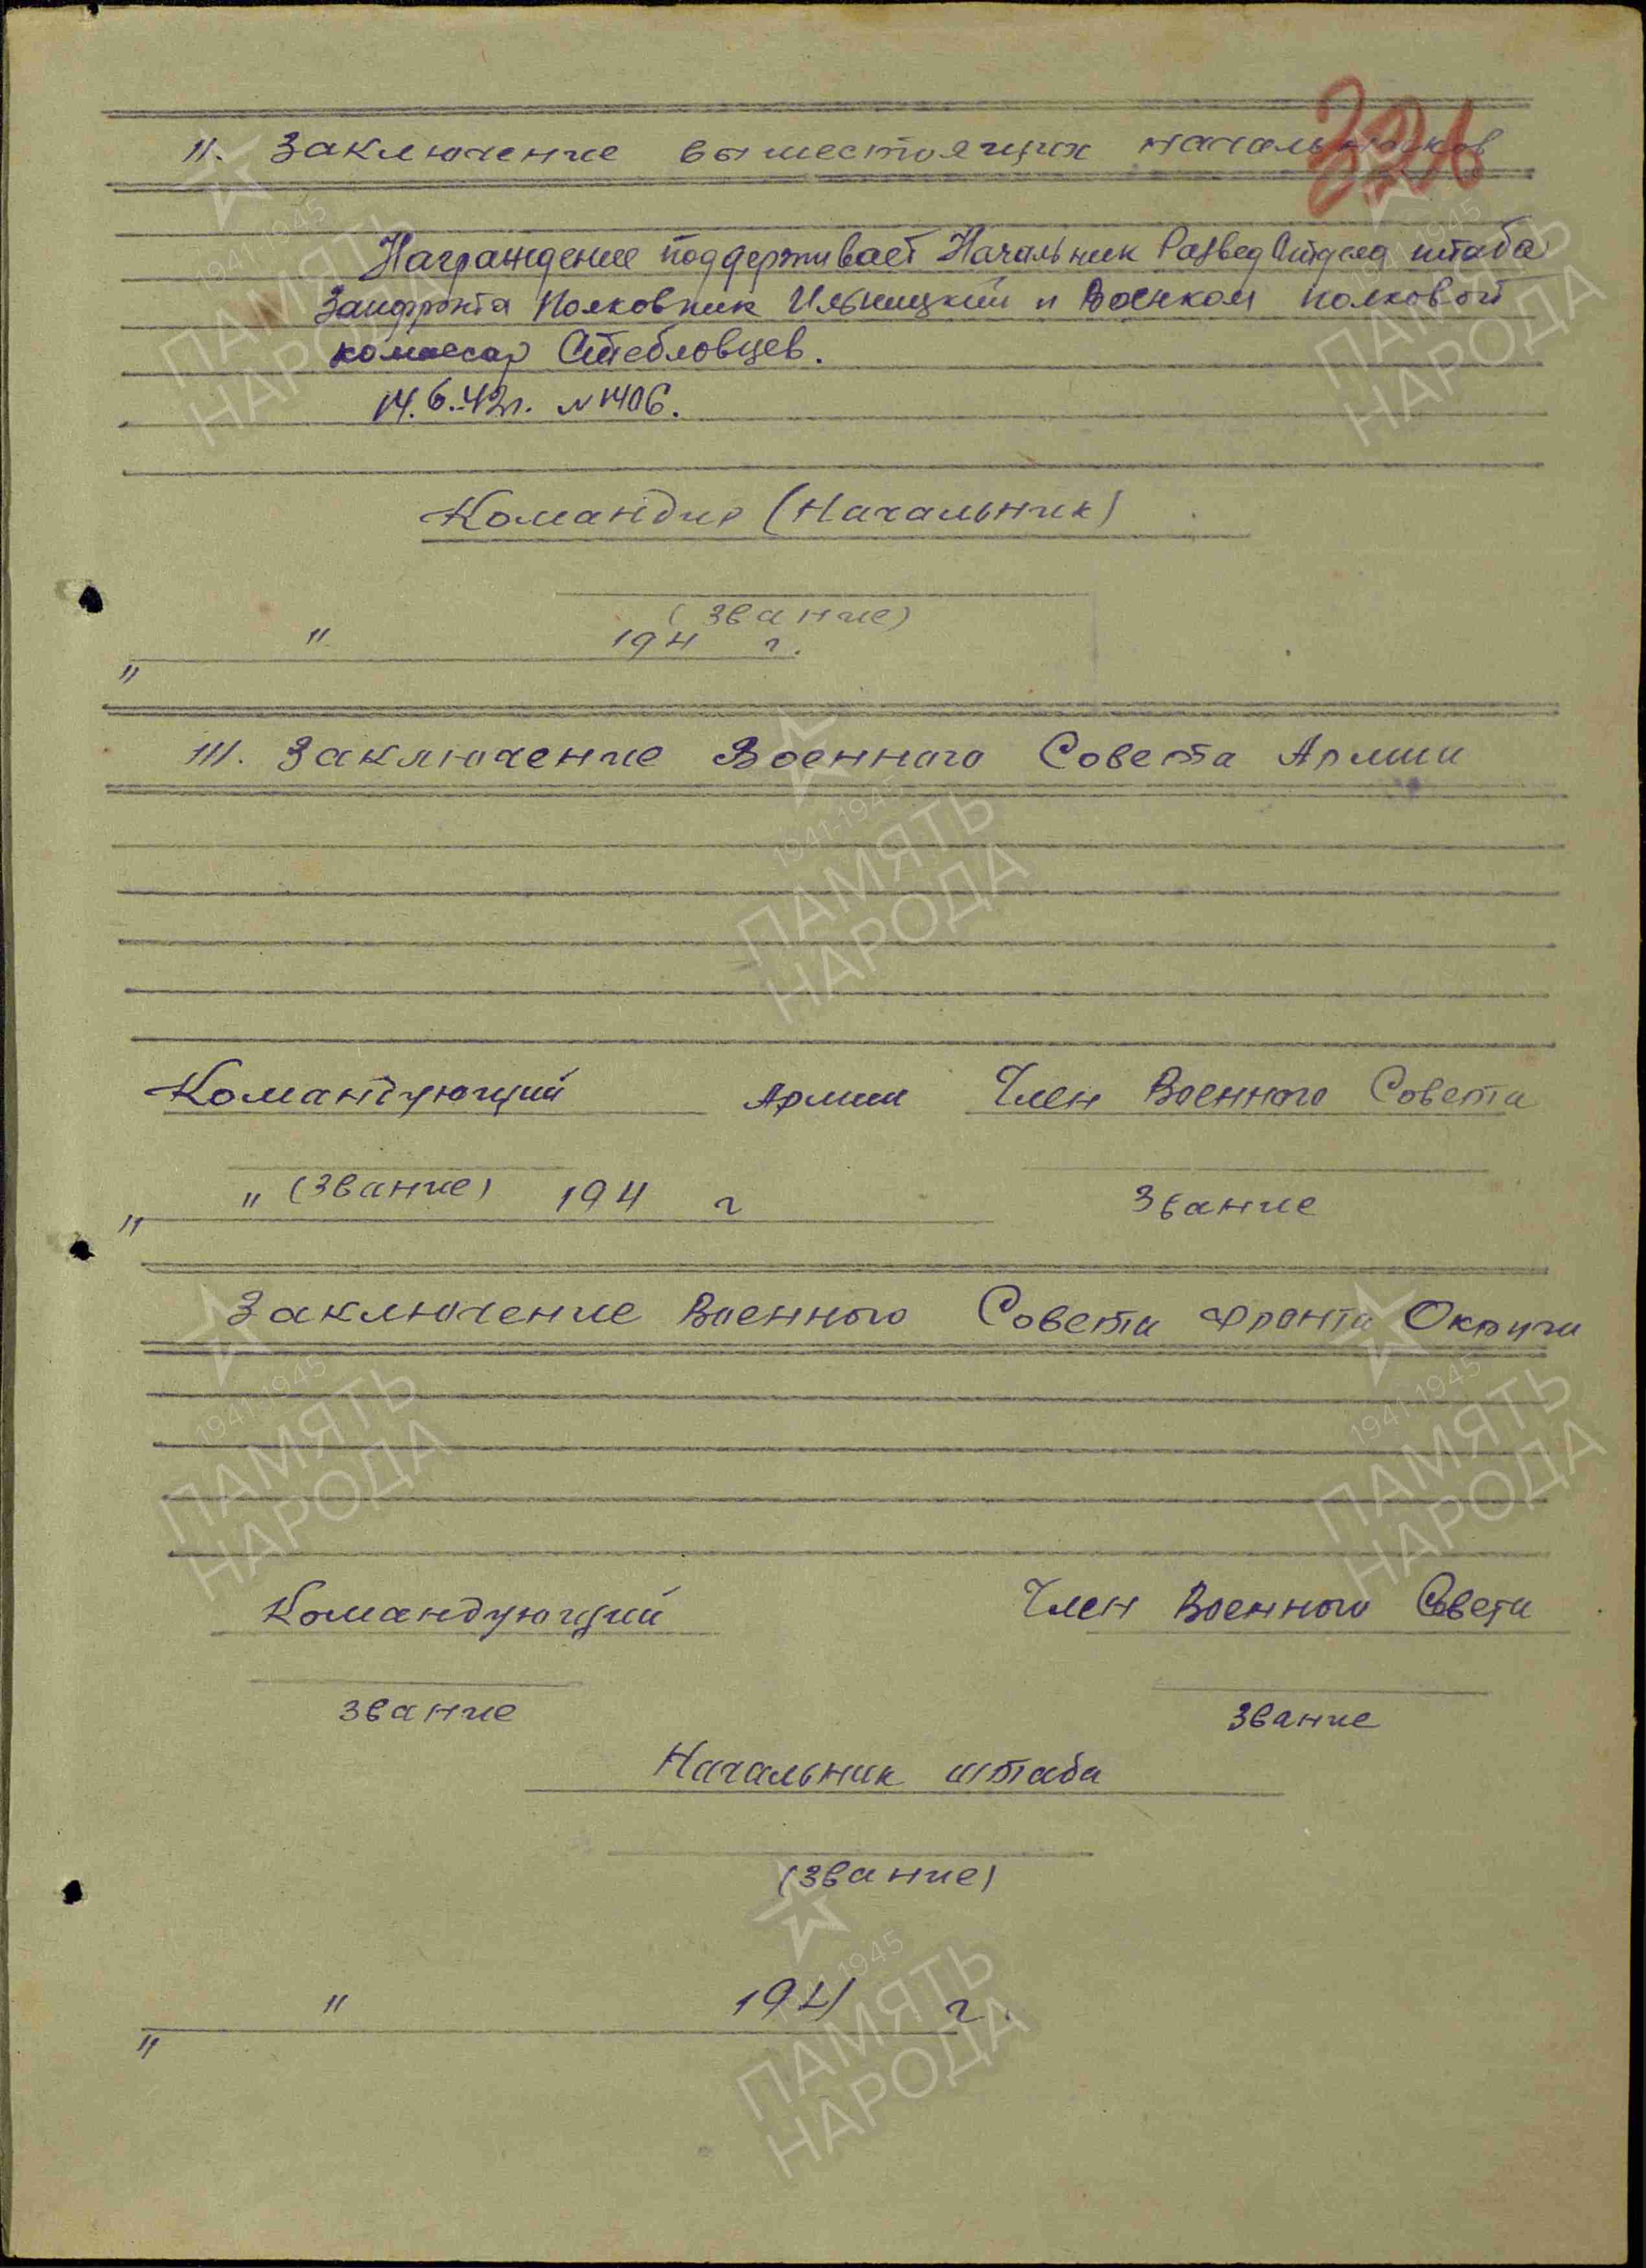 II. Заключение вышестоящих начальников
Награждение поддерживает Начальник РазведОтдела штаба
Запфронта Полковник Ильницкий и Военком полковой
комиссар Стебловцев.
14.6.42г. N1406.
Командир (Начальник)
(звание)
" " 194 г.
III. Заключение Военного Совета Армии
Командующий Армии Член Военного Совета
(звание) Звание
" " 194 г
Заключение Военного Совета Фронта Округа
Командующий Член Военного Совета
звание звание
Начальник штаба
(звание)
" " 194 г.
1941-1945
ПАМЯТЬ
НАРОДА
1941-1945
ПАМЯТЬ
НАРОДА
1941-1945
ПАМЯТЬ
НАРОДА
1941-1945
ПАМЯТЬ
НАРОДА
1941-1945
ПАМЯТЬ
НАРОДА
1941-1945
ПАМЯТЬ
НАРОДА